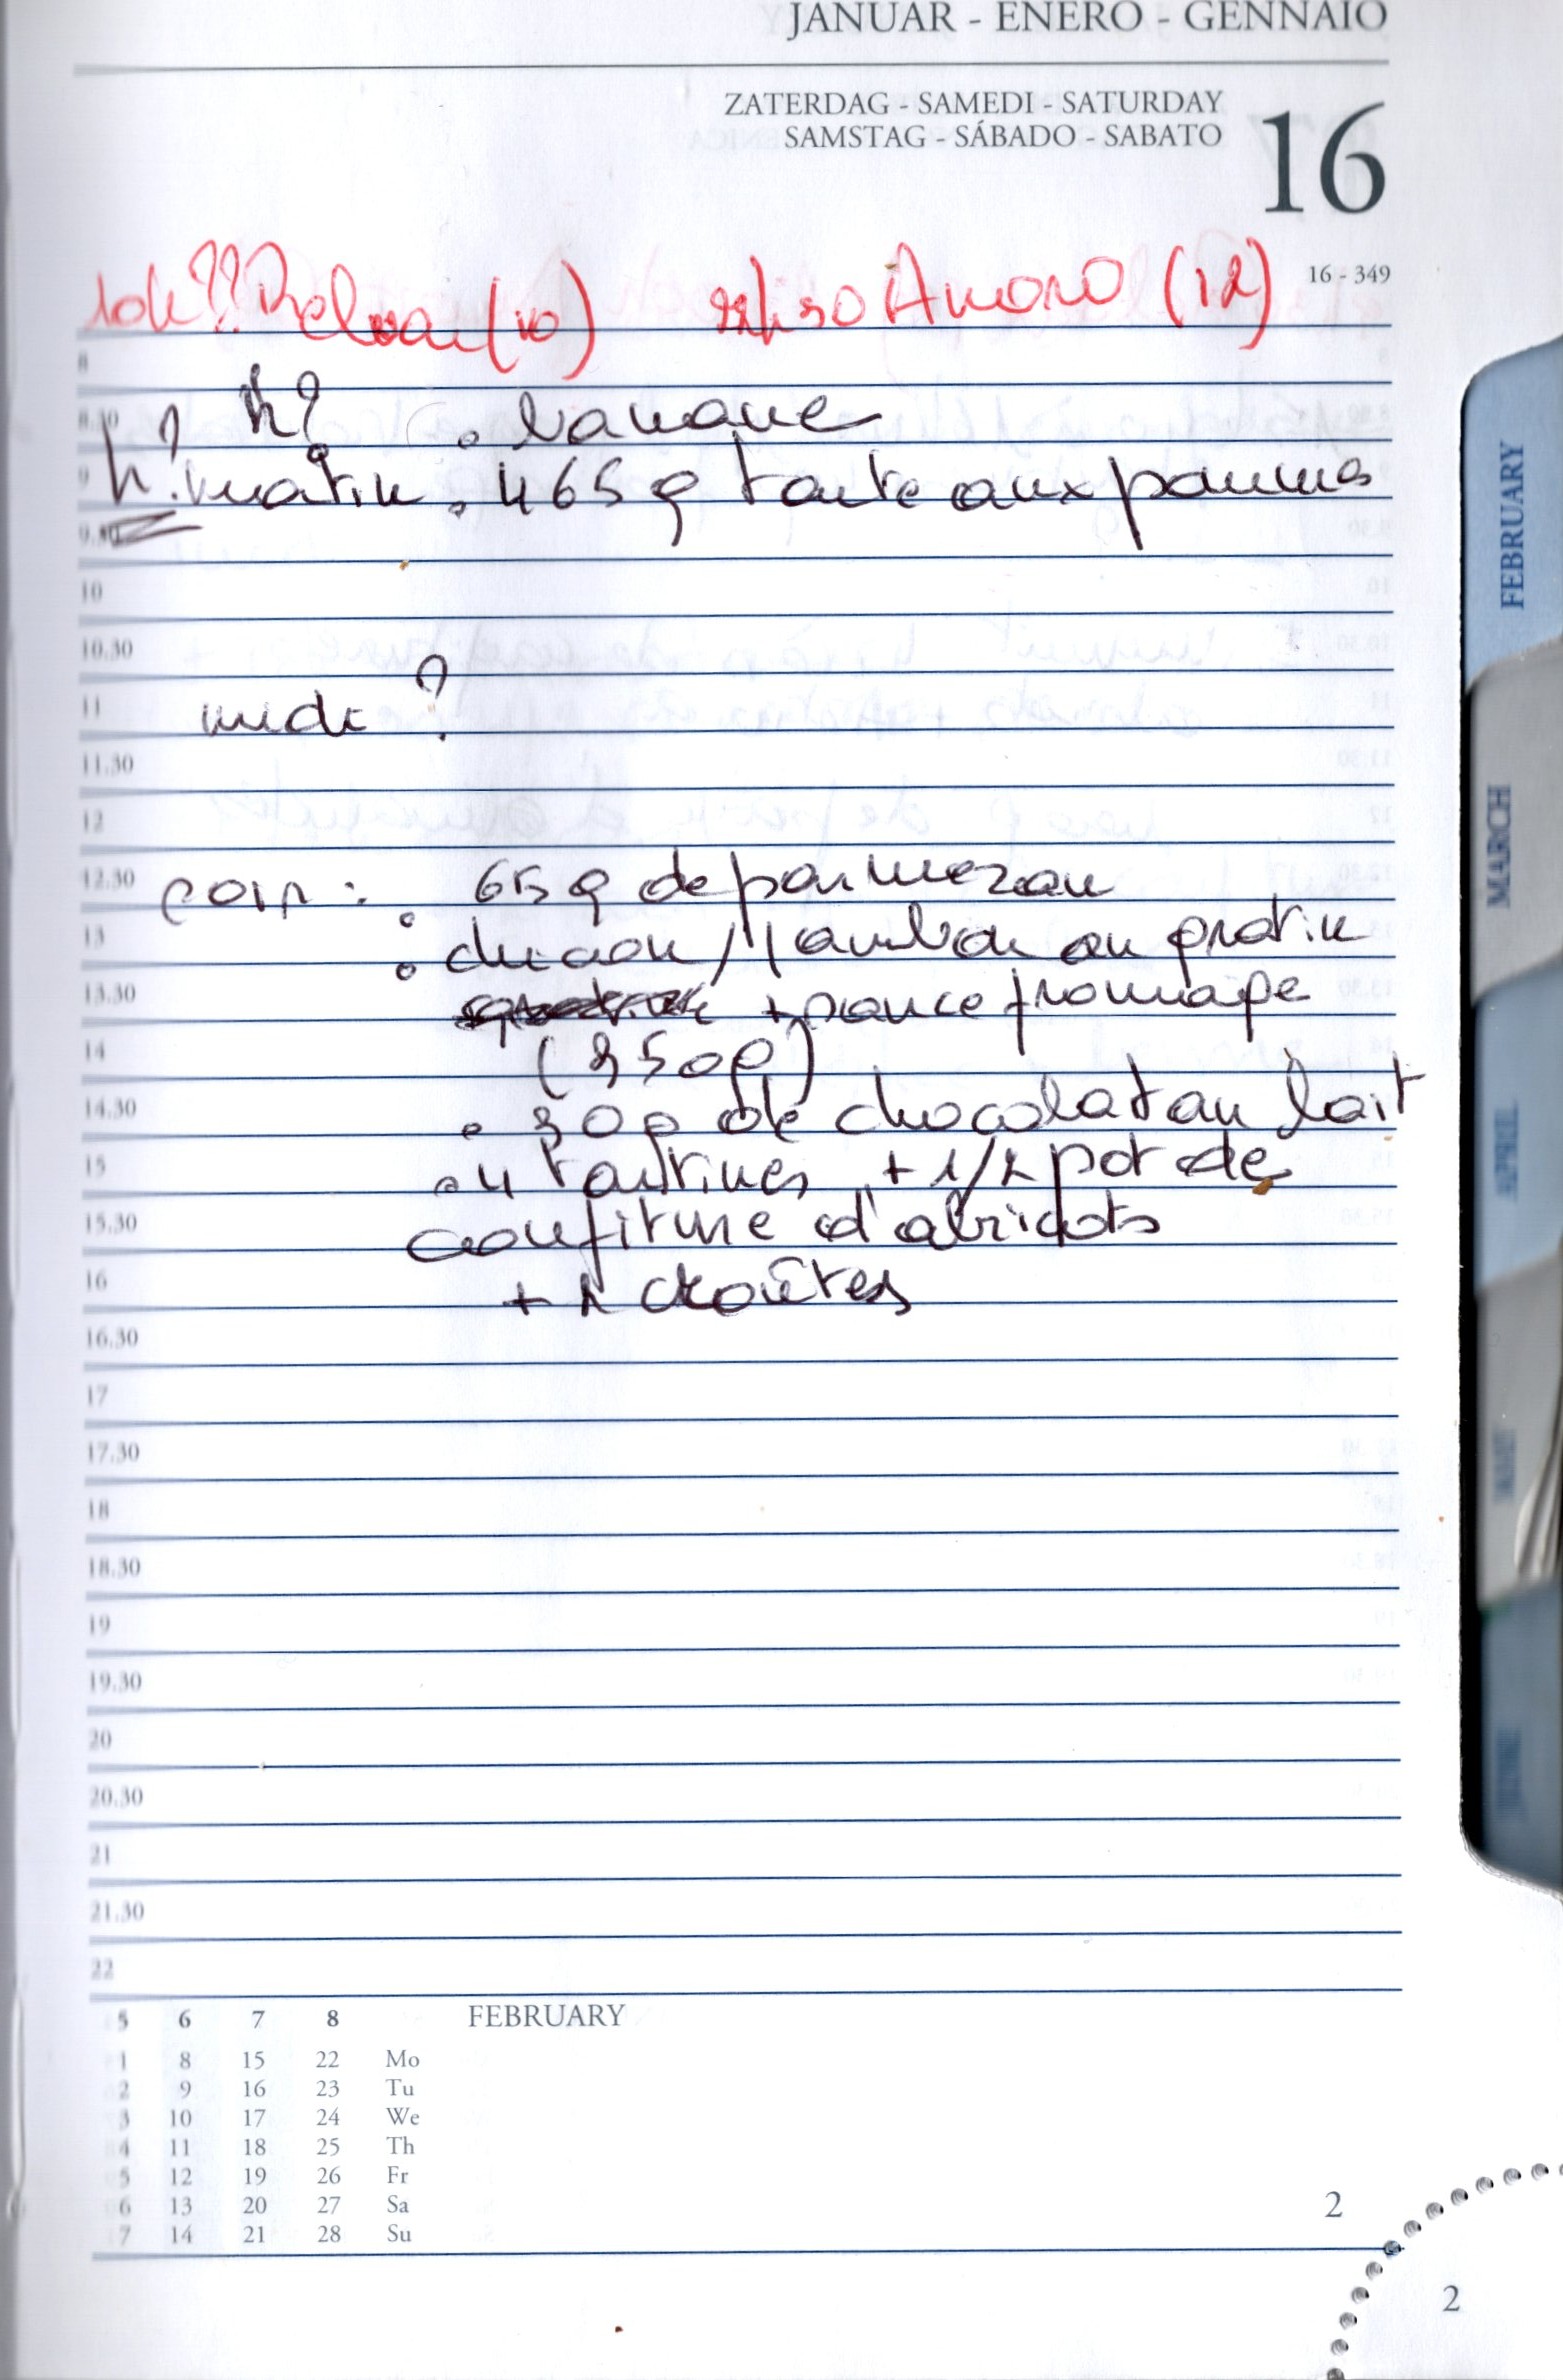 JANUAR - ENERO - GENNAIO
ZATERDAG - SAMEDI - SATURDAY
SAMSTAG - SÁBADO - SABATO
16
16 - 349
10h?? (10) 22h30 (12)
8
h? . banane
8.30
h? matin . 465 g tarte aux pommes
9
9.30
10
10.30
midi ?
11
11.30
12
soir : 65 g de parmezan
12.30
. chicon / jambon au gratin
13
+ sauce fromage
13.30
(350g)
14
. 30g de chocolat au lait
14.30
. 4 tartines + 1/2 pot de
15
confiture d'abricots
15.30
+ 2 croûtes
16
16.30
17
17.30
18
18.30
19
19.30
20
20.30
21
21.30
22
5 6 7 8 FEBRUARY
1 8 15 22 Mo
2 9 16 23 Tu
3 10 17 24 We
4 11 18 25 Th
5 12 19 26 Fr
6 13 20 27 Sa
7 14 21 28 Su
2
2
FEBRUARY
MARCH
APRIL